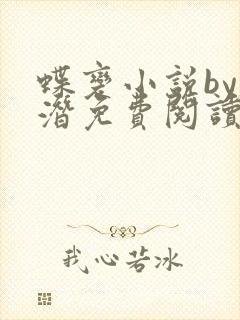 蝶变小说by
潛免費閱讀
我心若冰